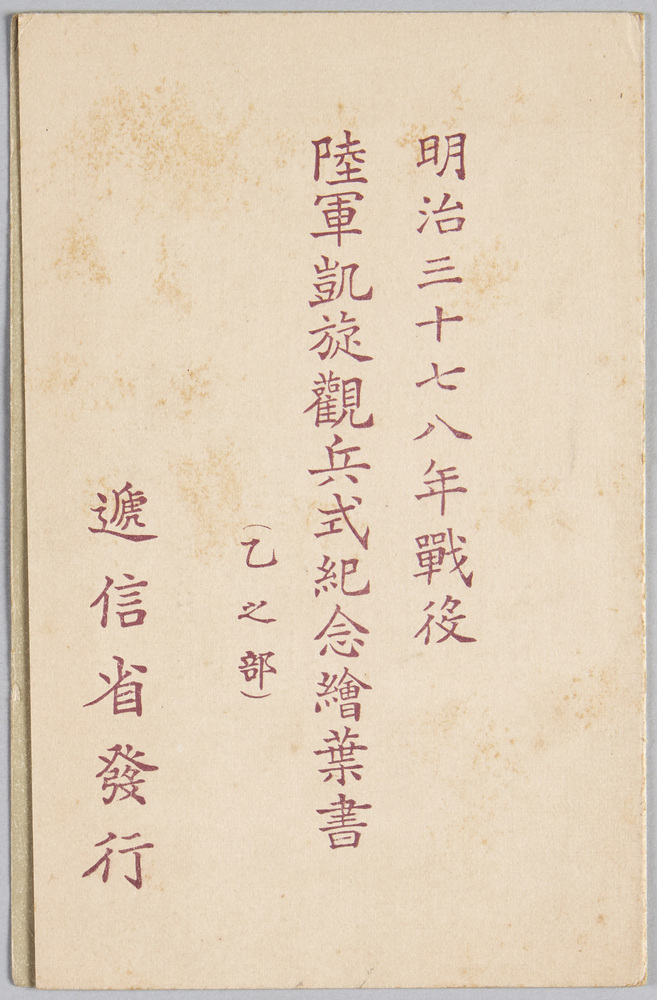 明治三十七八年戰役
陸軍凱旋觀兵式紀念繪葉書
（乙之部）
遞信省發行